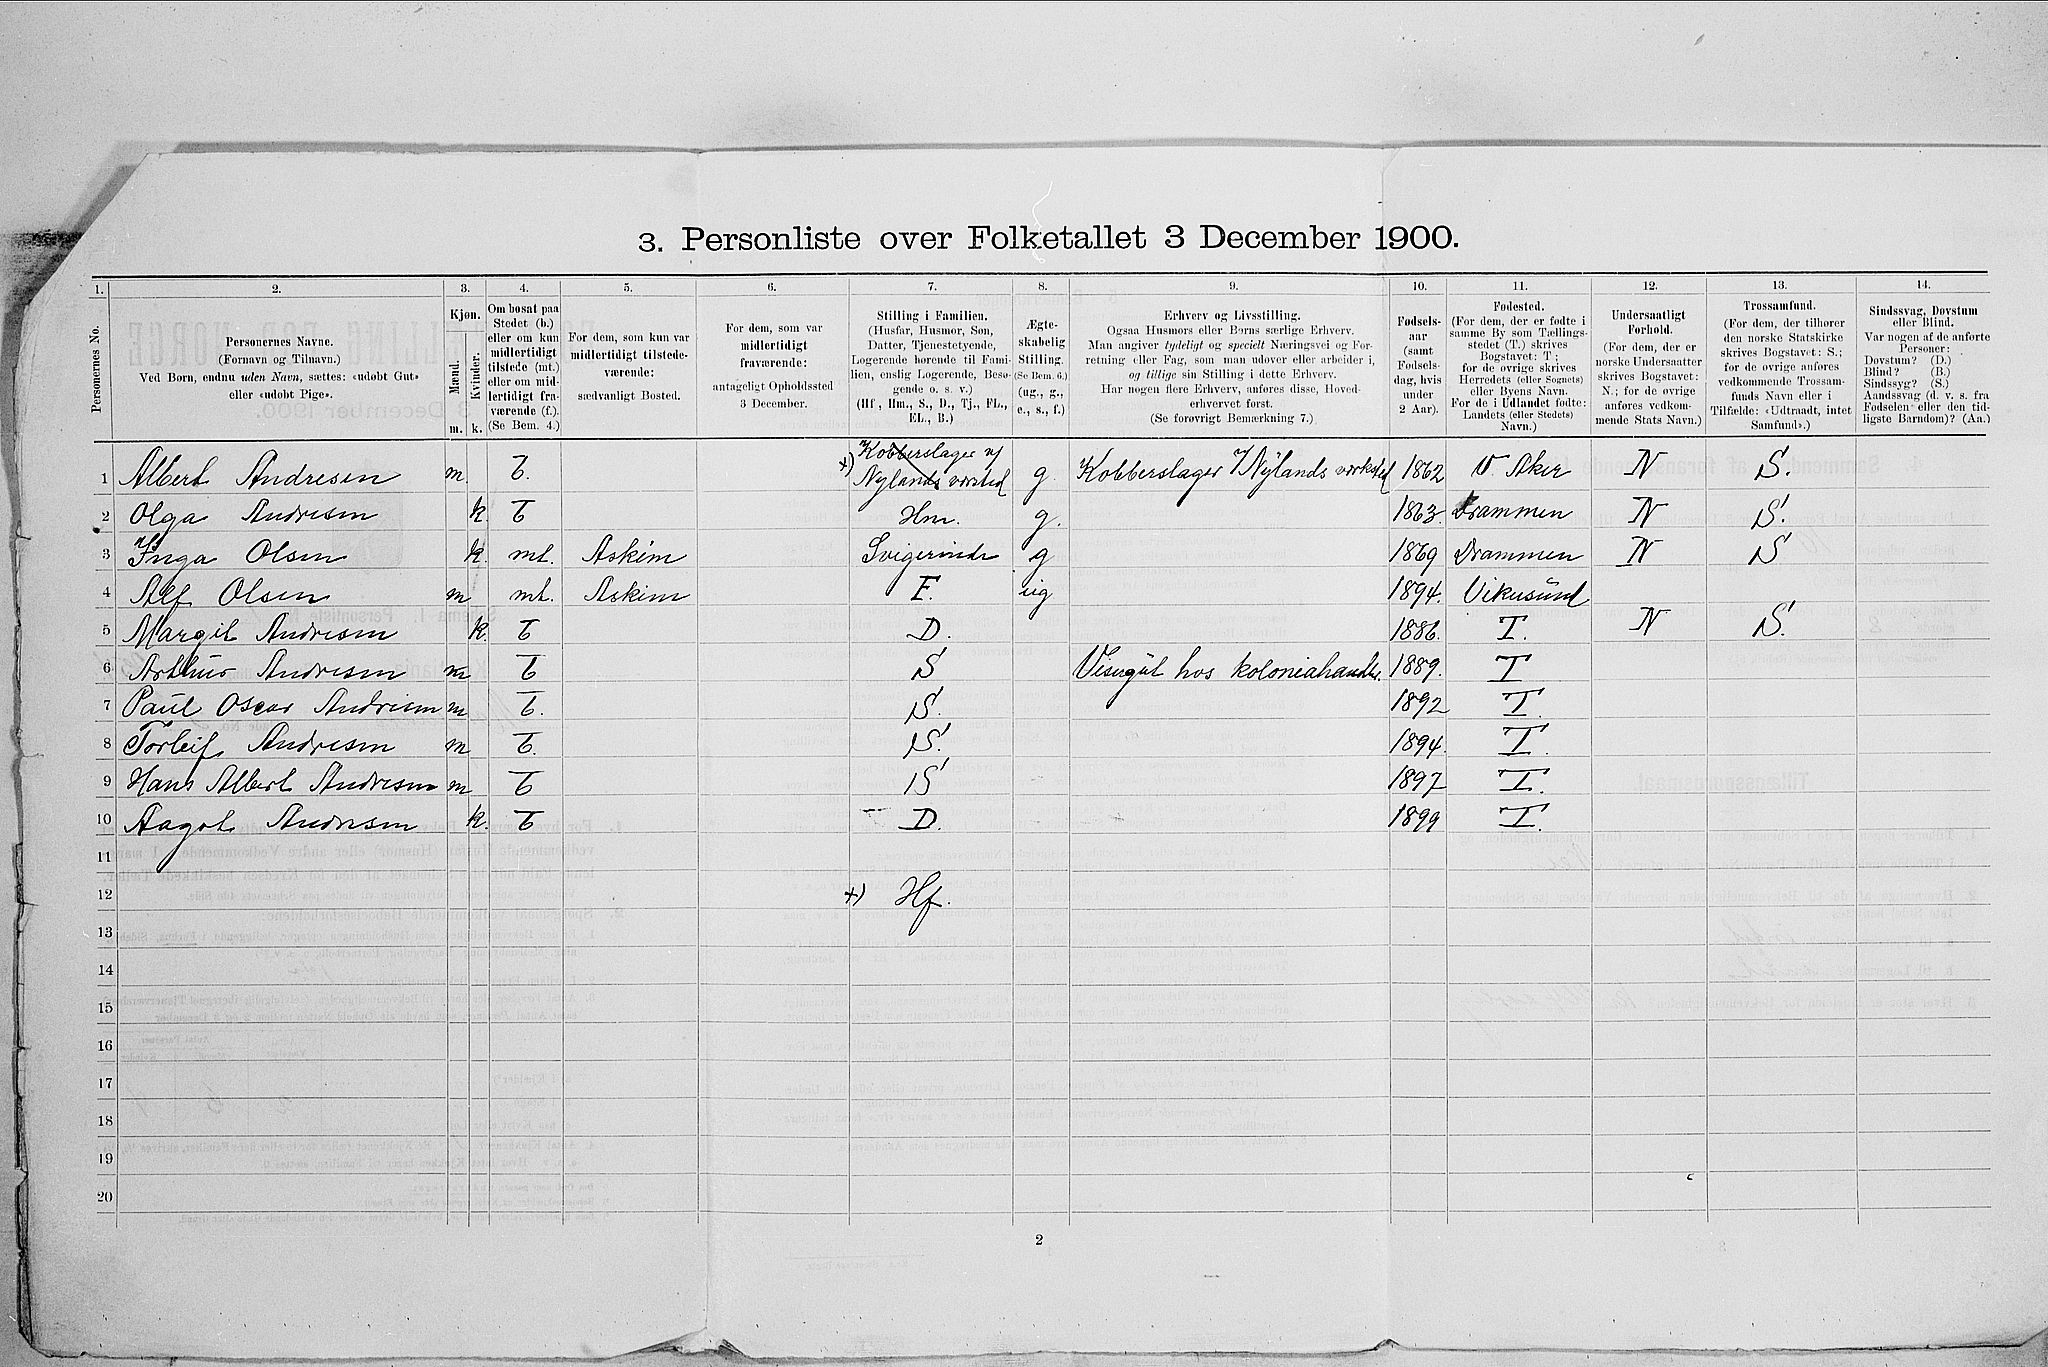 3. Personliste over Folketallet 3 December 1900.
1. 2. 3. 4. 5. 6. 7. 8. 9. 10. 11. 12. 13. 14.
Personernes No.
Personernes Navne.
(Fornavn og Tilnavn.)
Ved Børn, endnu uden Navn, sættes: «udøbt Gut»
eller «udøbt Pige».
Kjøn.
Mænd.
Kvinder.
m. k.
Om bosat paa
Stedet (b.)
eller om kun
midlertidigt
tilstede (mt.)
eller om mid-
lertidigt fra-
værende (f.).
(Se Bem. 4.)
For dem, som kun var
midlertidigt tilstede-
værende:
sædvanligt Bosted.
For dem, som var
midlertidigt
fraværende:
antageligt Opholdssted
3 December.
Stilling i Familien.
(Husfar, Husmor, Søn,
Datter, Tjenestetyende,
Logerende hørende til Fami-
lien, enslig Logerende, Besø-
gende o. s. v.)
(Hf., Hm., S., D., Tj., FL.,
EL., B.)
Ægte-
skabelig
Stilling.
(Se Bem. 6.)
(ug., g.,
e., s., f.)
Erhverv og Livsstilling.
Ogsaa Husmors eller Børns særlige Erhverv.
Man angiver tydeligt og specielt Næringsvei og For-
retning eller Fag, som man udover eller arbeider i,
og tillige sin Stilling i dette Erhverv.
Har nogen flere Erhverv, anføres disse, Hoved-
erhvervet først.
(Se forøvrigt Bemærkning 7.)
Fødsels-
aar
(samt
Fødsels-
dag, hvis
under
2 Aar).
Fødested.
(For dem, der er fødte i
samme By som Tællings-
stedet (T.) skrives
Bogstavet: T;
for de øvrige skrives
Herredets (eller Sognets)
eller Byens Navn.
For de i Udlandet fødte:
Landets (eller Stedets)
Navn.)
Undersaatligt
Forhold.
(For dem, der er
norske Undersaatter
skrives Bogstavet:
N.; for de øvrige
anføres vedkom-
mende Stats Navn.)
Trossamfund.
(For dem, der tilhører
den norske Statskirke
skrives Bogstavet: S.;
for de øvrige anføres
vedkommende Trossam-
funds Navn eller i
Tilfælde: «Udtraadt, intet
Samfund».)
Sindssvag, Døvstum
eller Blind.
Var nogen af de anførte
Personer:
Døvstum? (D.)
Blind? (B.)
Sindssyg? (S.)
Aandssvag (d. v. s. fra
Fødselen eller den tid-
ligste Barndom)? (Aa.)
1 Albert Andresen m. b. x) Kobberslager v/ Nylands værksted g. Kobberslager v/ Nylands værksted 1862 V. Aker N S.
2 Olga Andresen k. b Hm. g. 1863. Drammen N S.
3 Inga Olsen k. mt. Askim Svigerinde g 1869 Drammen N S
4 Alf Olsen m mt. Askim F. ug 1894. Vikesund
5 Margit Andresen k. b D. 1886. T. N S.
6 Arthur Andresen m b S Visergut hos kolonialhandler. 1889. T
7 Paul Oscar Andresen m b. S. 1892 T.
8 Torleif Andresen m b. S. 1894. T.
9 Hans Albert Andresen m b S 1897 T.
10 Aagot Andresen k. b D. 1899 T.
11
12 x) Hf.
13
14
15
16
17
18
19
20
2